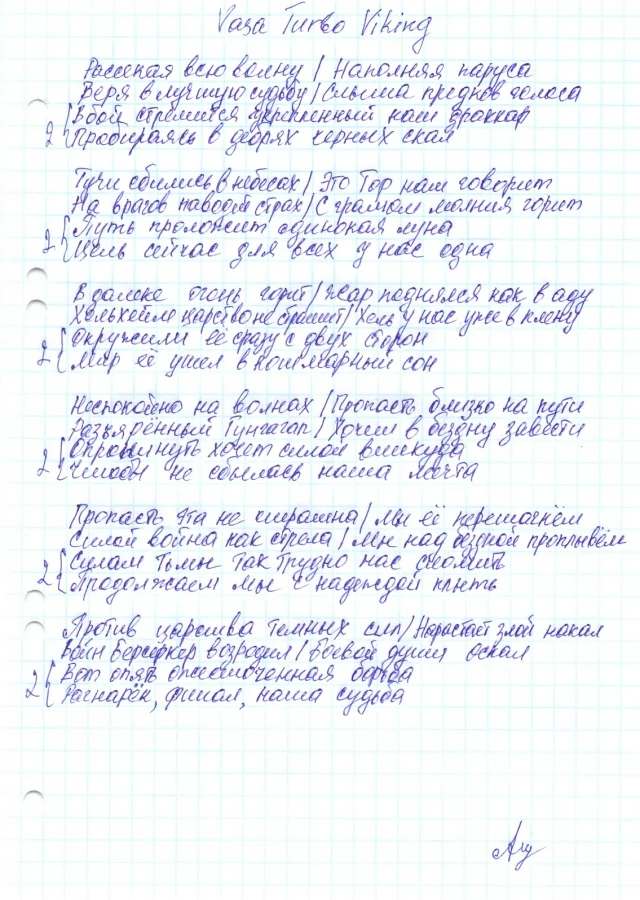 Vasa Turbo Viking
Рассекая всю волну / Наполняя паруса
Веря в лучшую судьбу / Слыша предков голоса
2 { В бой стремится укрепленный наш драккар
Пробираясь в дебрях черных скал
Тучи сбились в небесах / Это Тор нам говорит
На врагов наводит страх / С громом молния горит
2 { Путь проложит одинокая луна
Цель сейчас для всех у нас одна
В далеке огонь горит / Жар поднялся как в аду
Хельхейм царство не страшит / Хель у нас уже в плену
2 { Окружили её сразу с двух сторон
Мир её ушел в кошмарный сон
Неспокойно на волнах / Пропасть близко на пути
Разъярённый Гунгагап / Хочет в бездну завести
2 { Опрокинуть хочет силой в никуда
Чтобы не сбылась наша мечта
Пропасть эта не страшна / Мы её перешагнём
Силой война как стрела / Мы над бездной проплывём
2 { Силам Тьмы так трудно нас сломить
Продолжаем мы с надеждой плыть
Против царства темных сил / Нарастает злой накал
Воин Берсеркер возродил / Боевой души оскал
2 { Вот опять ожесточенная борьба
Рагнарёк, финал, наша судьба